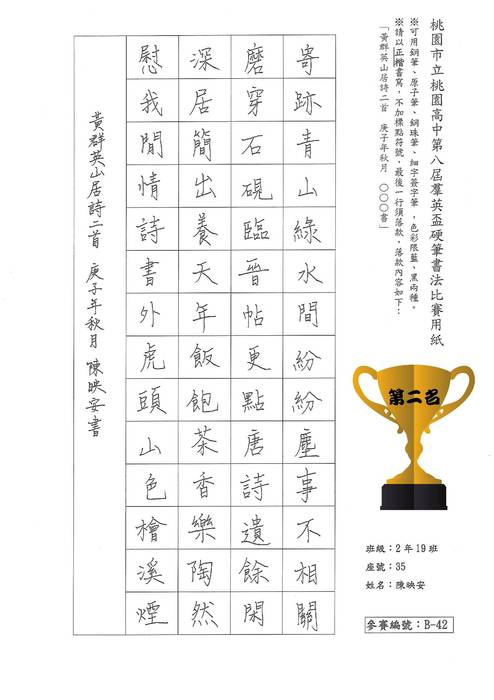 桃園市立桃園高中第八屆羣英盃硬筆書法比賽用紙
※可用鋼筆、原子筆、鋼珠筆、細字簽字筆，色彩限藍、黑兩種。
※請以正楷書寫，不加標點符號，最後一行須落款，落款內容如下：
「黃群英山居詩二首　庚子年秋月　○○○書」
寄跡青山綠水間紛紛塵事不相關
磨穿石硯臨晉帖更點唐詩遺餘閑
深居簡出養天年飯飽茶香樂陶然
慰我閒情詩書外虎頭山色檜溪煙
黃群英山居詩二首　庚子年秋月　陳映安書
第二名
班級：2年19班
座號：35
姓名：陳映安
參賽編號：B-42